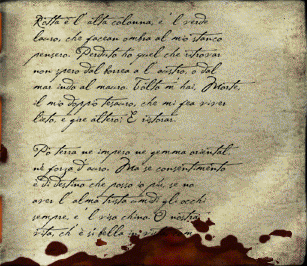 Rotta è l' alta colonna, e 'l verde
lauro, che facean ombra al mio stanco
pensero. Perduto ho quel che ritrovar
non spero dal borrea a l' austro, o dal
mar indo al mauro. Tolto m' hai, Morte,
il mio doppio tesauro, che mi fea viver
lieto, e gire altero; E ristorar.
Pò terra né impero né gemma oriental
né forza d' auro. Ma se consentimento
è di destino che posso io più, se no
aver l' alma trista umidi gli occhi
sempre, e 'l viso chino. O nostra
vita, ch' è sì bella in